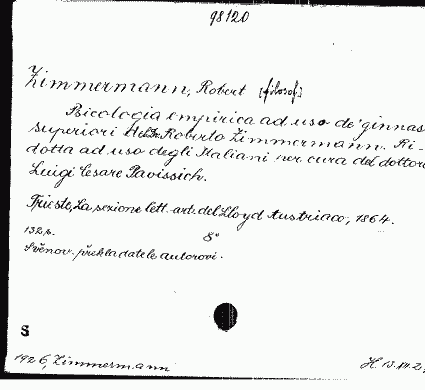 98120
Zimmermann, Robert [filosof.]
Psicologia empirica ad uso de' ginnas
superiori del Dr. Roberto Zimmermann. Ri-
dotta ad uso degli Italiani per cura del dottore
Luigi Cesare Pavissich.
Trieste, La sezione lett.-art. del Lloyd Austriaco, 1864.
132 p. 8°
Svěnov. překladatele autorovi.
S
1926, Zimmermann